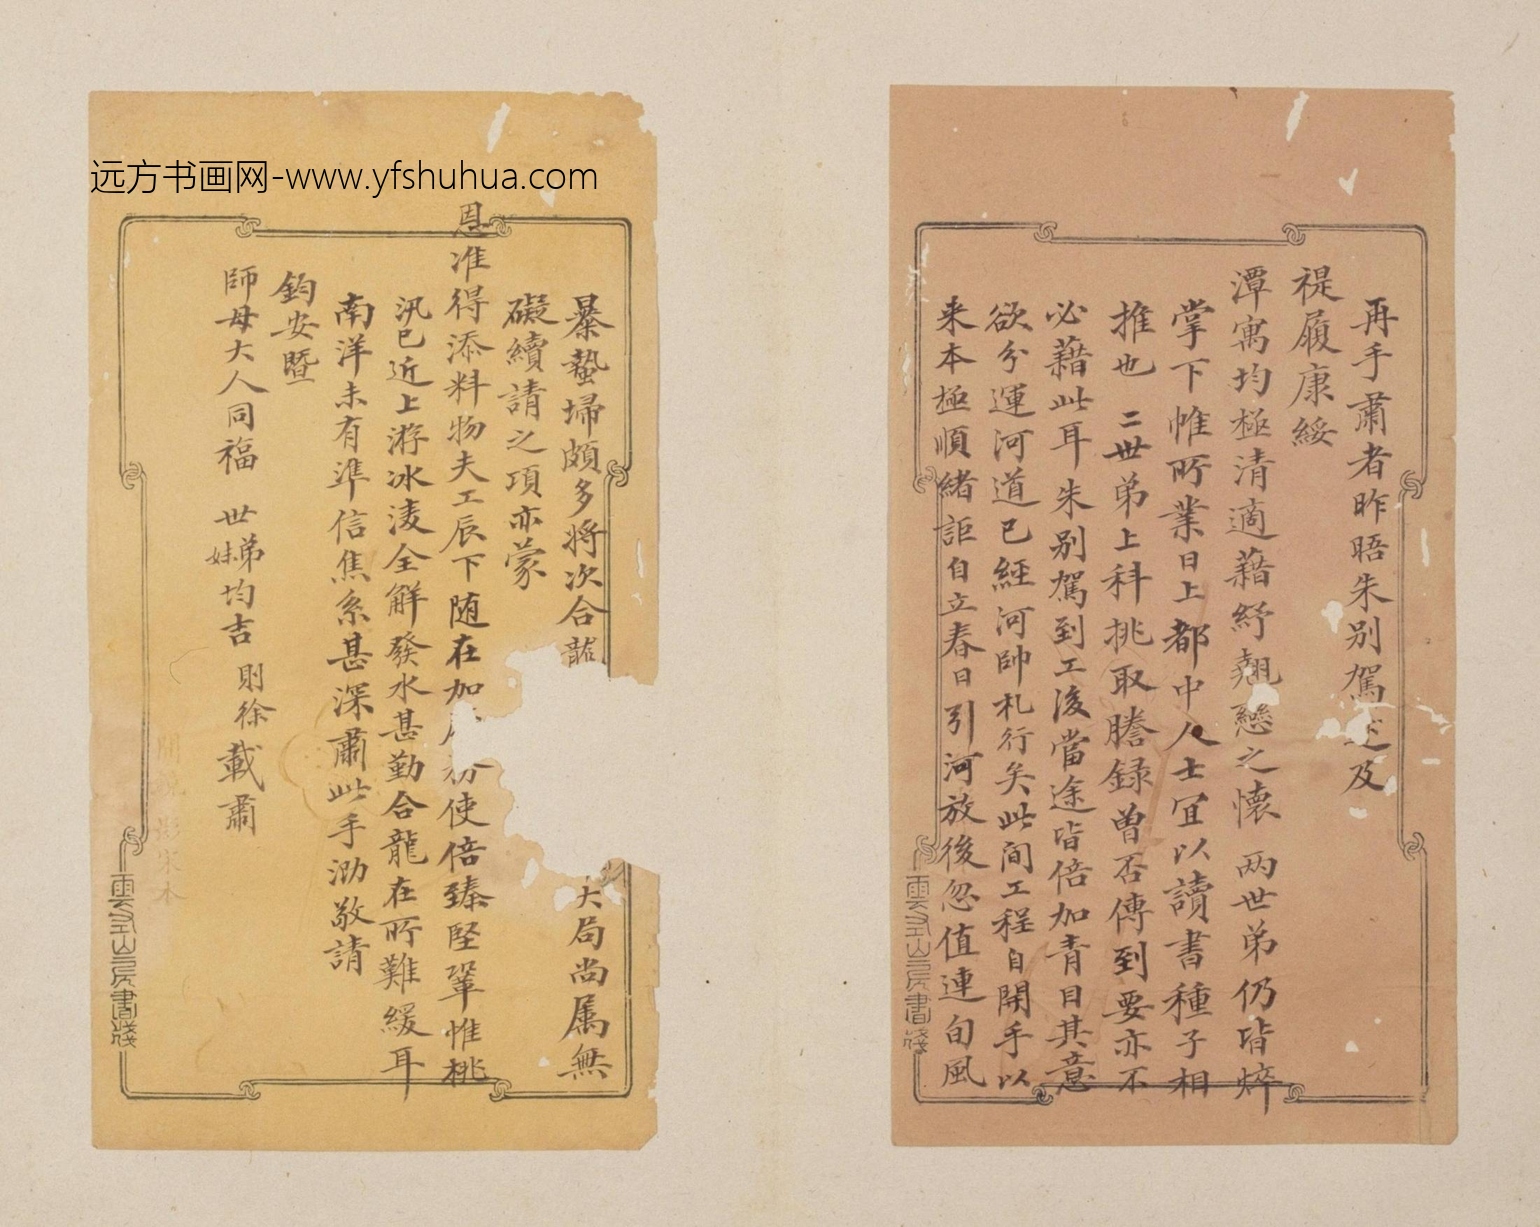 再手肅者昨晤朱別駕述及
禔履康綏
潭寓均極清適藉紓翹戀之懷 兩世弟仍皆焠
掌下帷所業日上都中人士宜以讀書種子相
推也 二世弟上科挑取謄錄曾否傳到要亦不
必藉此耳朱別駕到工後當途皆倍加青目其意
欲分運河道已經河帥札行矣此間工程自開手以
来本極順緒詎自立春日引河放後忽值連旬風
雲全山房書牋
暴蟄埽頗多將次合龍
大局尚屬無
礙續請之項亦蒙
恩准得添料物夫工辰下随在加
使倍臻堅鞏惟桃
汛已近上游冰淩全解發水甚勤合龍在所難緩耳
南洋未有準信焦系甚深肅此手泐敬請
鈞安暨
師母大人同福 世弟妹均吉 則徐載肅
雲全山房書牋
远方书画网-www.yfshuhua.com